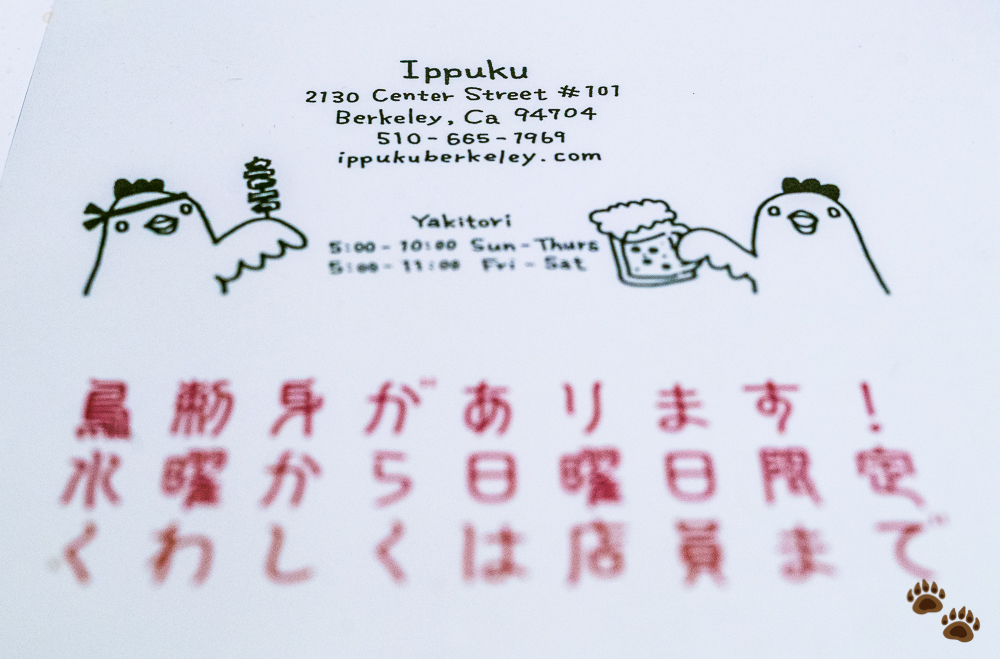 Ippuku
2130 Center Street #101
Berkeley, Ca 94704
510-665-7969
ippukuberkeley.com
Yakitori
5:00-10:00 Sun-Thurs
5:00-11:00 Fri-Sat
鳥刺身があります!
水曜から日曜日限定
くわしくは店員まで